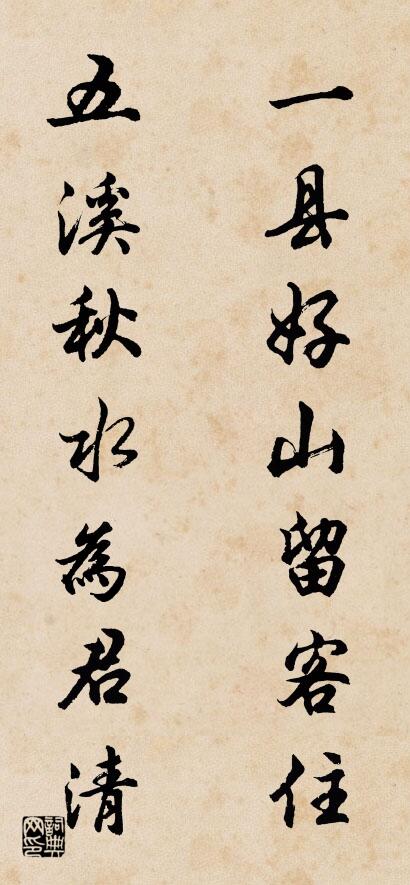 一县好山留客住
五溪秋水為君清
詞典网印